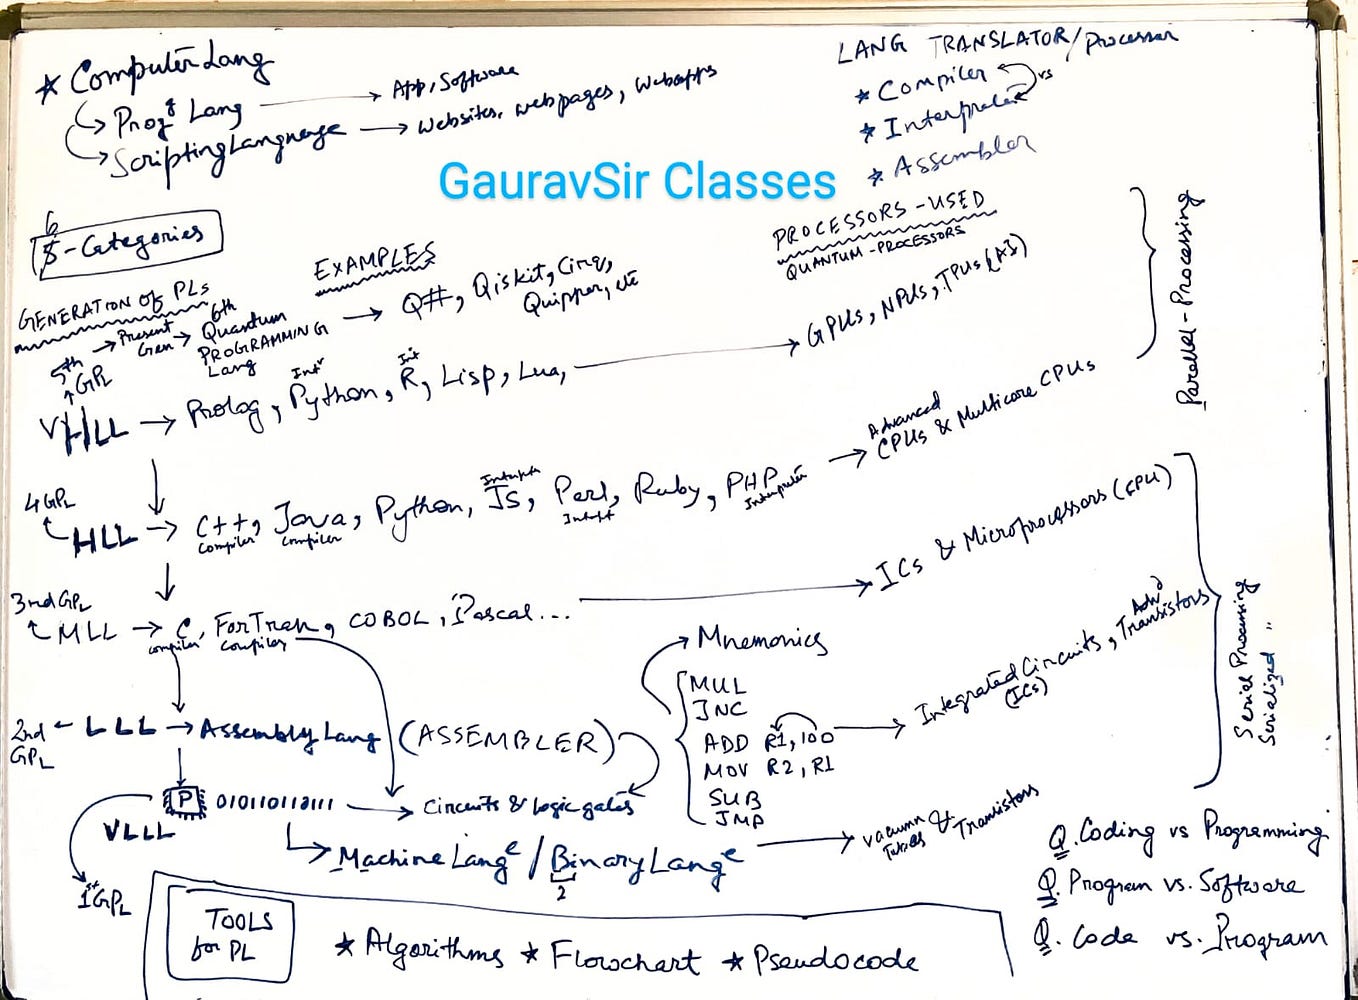 ★ Computer Lang
→ Progg Lang → App, Software
→ Scripting Language → Websites, webpages, Webapps
LANG TRANSLATOR/Processor
★ Compiler
vs
★ Interpreter
★ Assembler
GauravSir Classes
6
5-Categories
GENERATION OF PLs
EXAMPLES
PROCESSORS-USED
QUANTUM-PROCESSORS
5th GPL → Present Gen → 6th Quantum PROGRAMMING Lang → Q#, Qiskit, Cirq, Quipper, etc
VHLL → Prolog, Python, R, Lisp, Lua, → GPUs, NPUs, TPUs (AI)
Intr
Int
Parallel-Processing
4GPL
HLL → C++, Java, Python, JS, Perl, Ruby, PHP → Advanced CPUs & Multicore CPUs
compiler compiler
3rdGPL
MLL → C, ForTran, COBOL, Pascal... → ICs & Microprocessors (CPU)
compiler compiler
2nd GPL ← LLL → Assembly Lang (ASSEMBLER)
→ Mnemonics
MUL
INC
ADD R1,100 → Integrated Circuits, Advd Transistors
(ICs)
MOV R2, R1
SUB
JMP
Serial Processing
Serialized "
P 010110110111 → Circuits & logic gates
VLLL
→ Machine Lange / Binary Lange → vacuum Tubes & Transistors
2
1st GPL
TOOLS for PL
★ Algorithms ★ Flowchart ★ Pseudocode
Q. Coding vs Programming
Q. Program vs. Software
Q. Code vs. Program